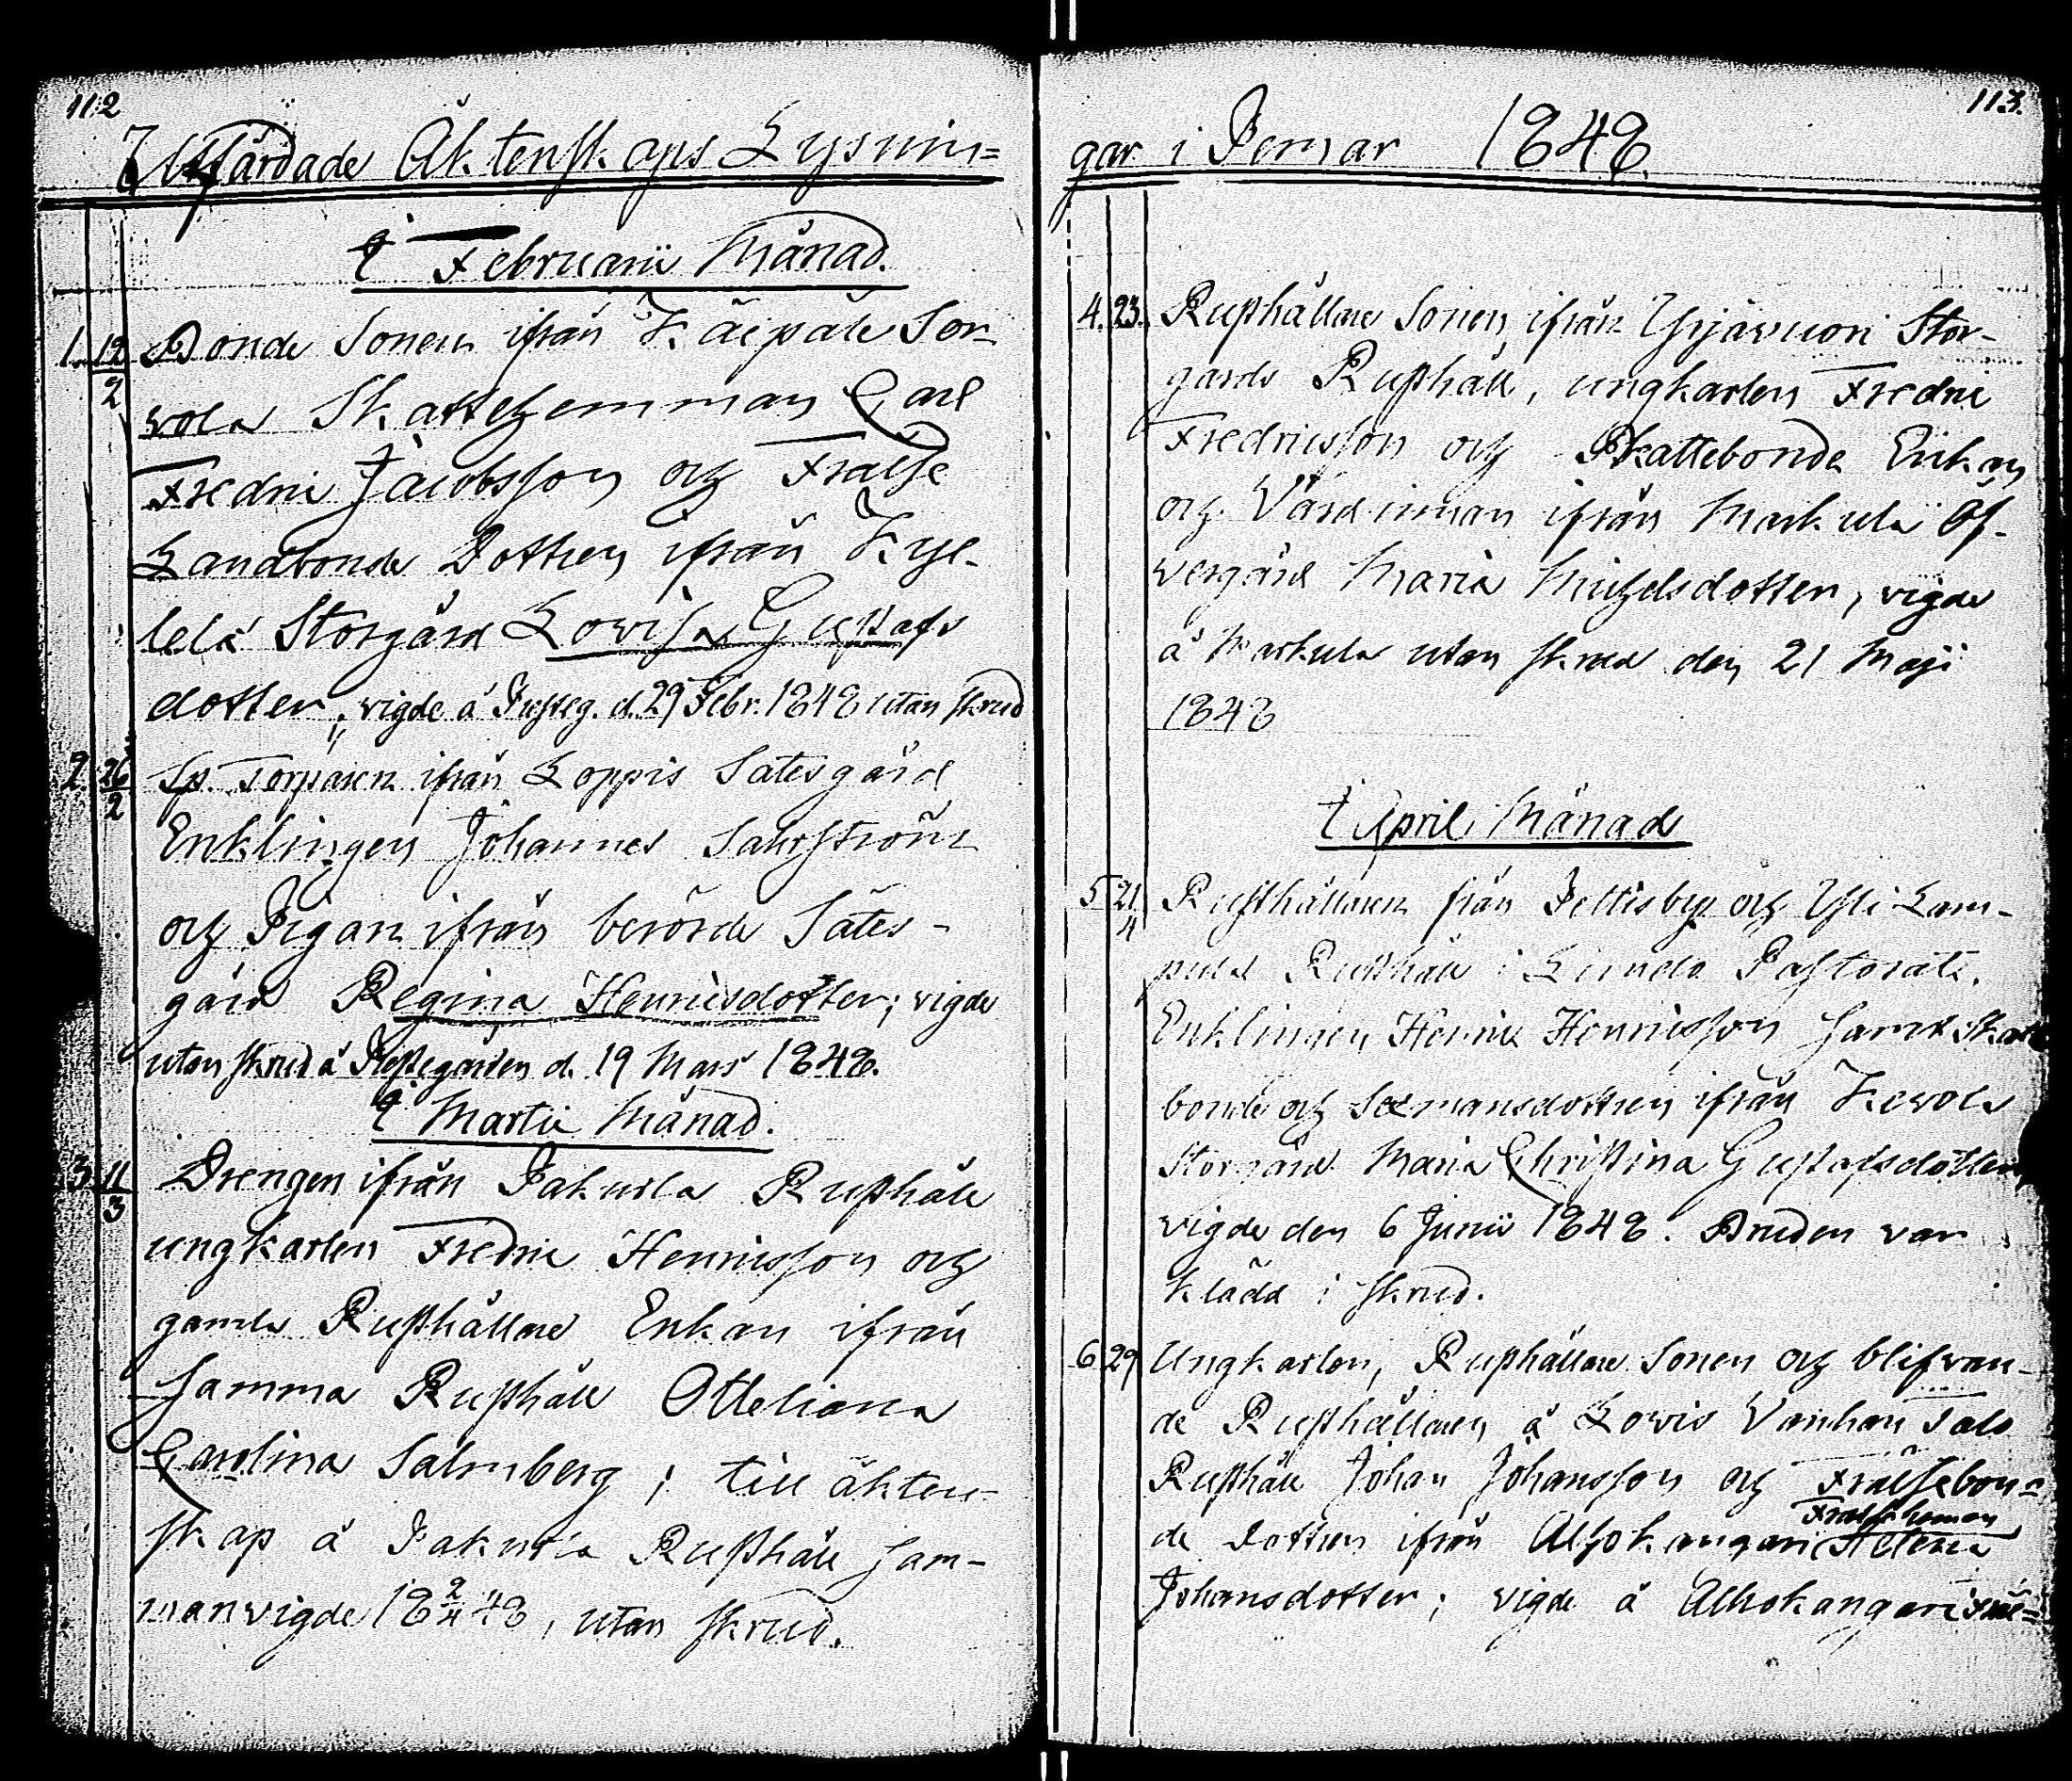 112
Utfärdade Äktenskaps Lysnin=
i Februarii Månad.
1. 12/2 Bonde Sonen ifrån Käipälä Sor-
vola Skattehemman Carl
Fredric Jacobsson och Frälse
Landbonde Dottren ifrån Kyl-
lelä Storgård Lovisa Gustafs
dotter; vigde å Presteg. d. 29 Febr. 1848 utan skrud
2. 26/2 Sp. Torparen ifrån Loppis Sätesgård
Enklingen Johannes Sahrström
och Pigan ifrån berörde Sätes-
gård Regina Henricsdotter; vigde
utan skrud å Prestegården d. 19 Mars 1848.
i Martii Månad.
3. 11/3 Drengen ifrån Pakurla Rusthåll
ungkarlen Fredric Henricsson och
gamla Rusthållare Enkan ifrån
samma Rusthåll Otteliana
Carolina Salmberg; till äkten-
skap å Pakurla Rusthåll sam-
manvigde 18 2/4 48, utan skrud.
113.
gar i Pemar 1848.
4. 23. Rusthållare Sonen, ifrån Yrjäsvuori Stor-
gårds Rusthåll, ungkarlen Fredric
Fredricsson och Skattebonde Enkan
och Värdinnan ifrån Markula Öf-
vergård Maria Michelsdotter, vigde
å Markula utan skrud den 21 Maji
1848
i April Månad
5 21/4 Rusthållaren från Pettisby och Yli Lam-
Rusthåll i Lundo Pastorat.
Enklingen Henric Henricsson samt Skatte
bonde och dottren ifrån Kevola
Storgård Maria Christina Gustafsdotter
vigde den 6 Junii 1848. Bruden var
klädd i skrud.
6 29 Ungkarlen, Rusthållare Sonen och blifvan-
de Rusthållaren å Lovis Vanhan Talo
Rusthåll Johan Johansson och Frälsebon=
Frälseheman
de Dottren ifrån Alhokangari Helena
Johansdotter; vigde å Alhokangari Fräl=